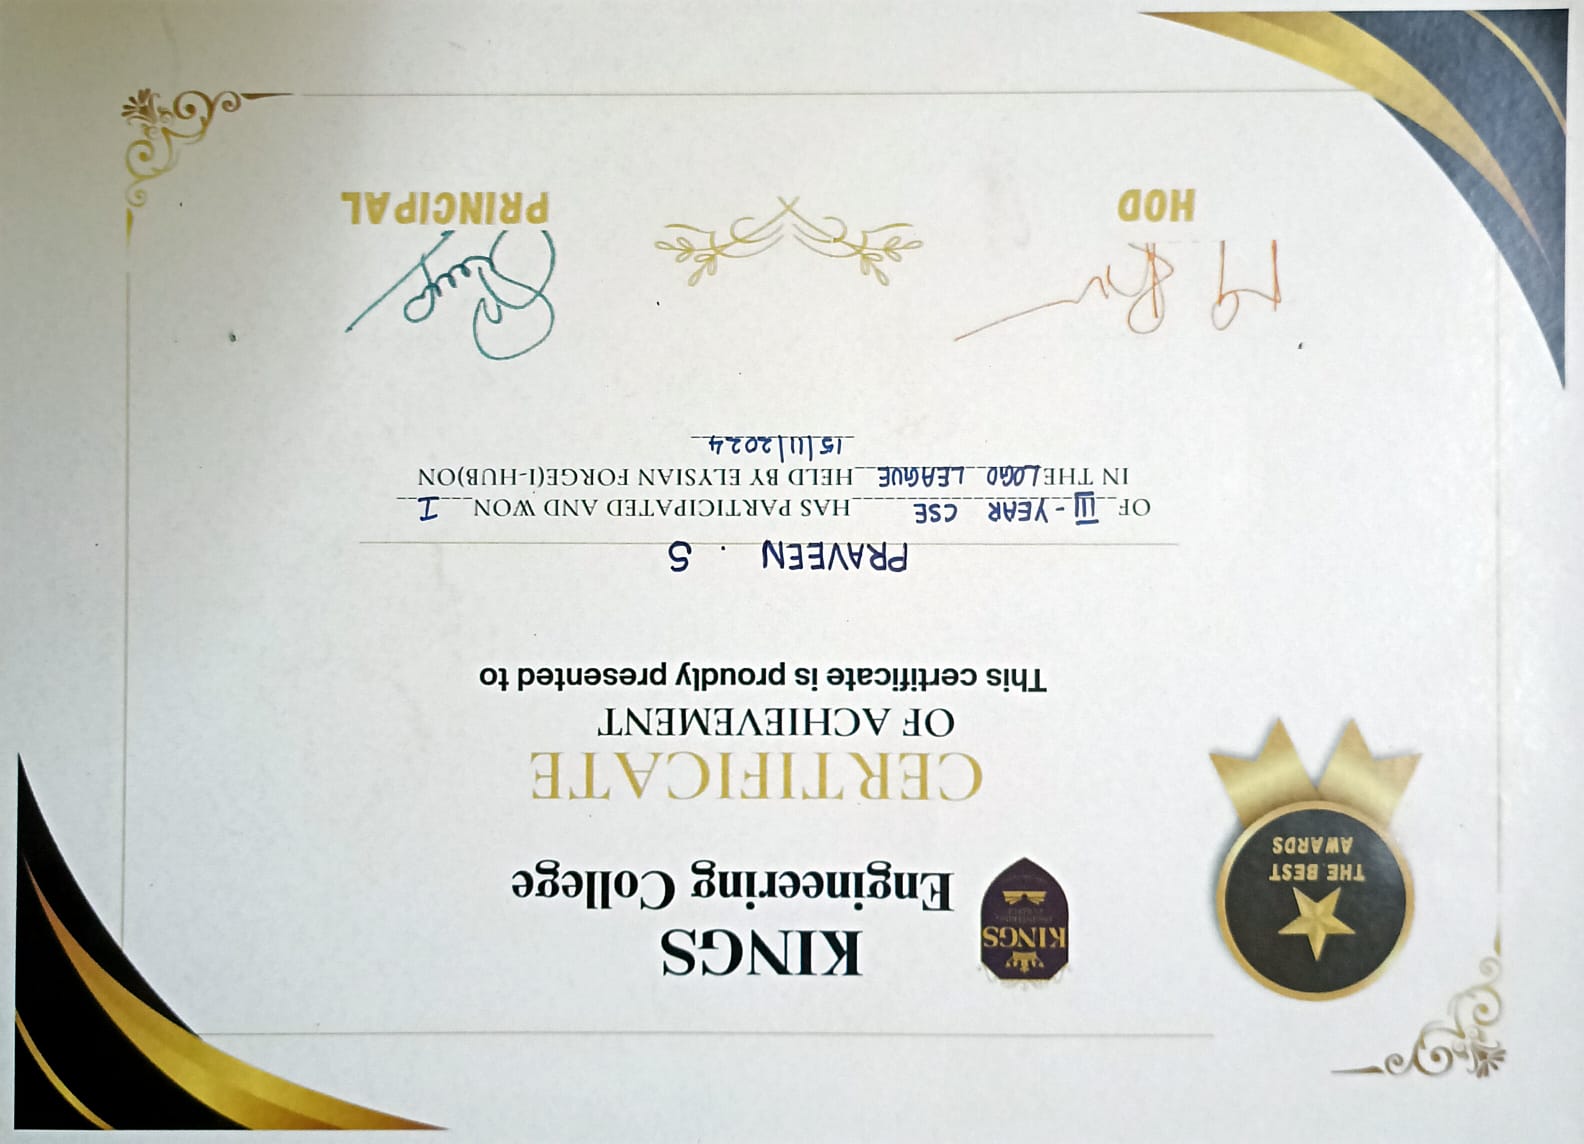 THE BEST
AWARDS
KINGS
KINGS
Engineering College
CERTIFICATE
OF ACHIEVEMENT
This certificate is proudly presented to
PRAVEEN . S
OF III - YEAR CSE HAS PARTICIPATED AND WON I
IN THE LOGO LEAGUE HELD BY ELYSIAN FORGE(I-HUB)ON
15/11/2024
HOD
PRINCIPAL